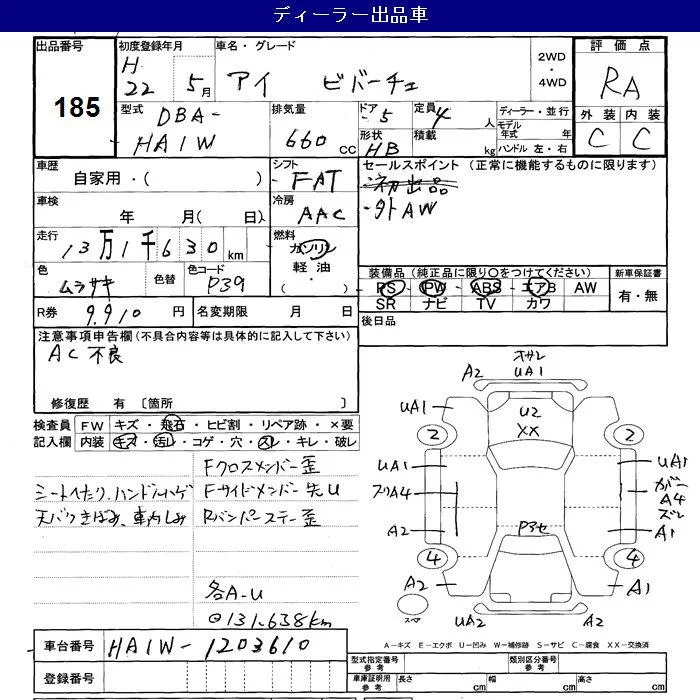 ディーラー出品車
出品番号
185
初度登録年月
H
22 5月
車名・グレード
アイ ビバーチェ
2WD
・
4WD
評価点
RA
外装 内装
C C
型式
DBA-
HA1W
排気量
660 cc
ドア 5
定員 4 人
形状 HB
積載 kg
ディーラー・並行
モデル年式 年
ハンドル 左・右
車歴
自家用・( )
シフト
FAT
セールスポイント (正常に機能するものに限ります)
・初出品
・外AW
車検
年 月( 日)
冷房
AAC
走行
13万1千630km
燃料
ガソリン
軽油・
( )
色
ムラサキ
色替
色コード
P39
装備品 (純正品に限り○をつけてください)
PS PW ABS エアB AW
SR ナビ TV カワ
新車保証書
有・無
R券 9.910 円
名変期限 月 日
後日品
注意事項申告欄 (不具合内容等は具体的に記入して下さい)
AC不良
修復歴 有 〔箇所 〕
検査員記入欄
FW キズ・飛石・ヒビ割・リペア跡・×要
内装 キズ・汚レ・コゲ・穴・スレ・キレ・破レ
Fクロスメンバー歪
シートへたり、ハンドルハゲ Fサイドメンバー先U
天バリきばみ、車内しみ Rバンパーステー歪
各A-U
◎131.638km
オサレ
A2 UA1
UA1
U2
XX
2 2
UA1 UA1
スリA4
ガバー
A4
ズレ
A2 P3セ A1
4 4
A2 A1
スペア
UA2 A2
A-キズ E-エクボ U-凹み W-補修跡 S-サビ C-腐食 XX-交換済
車台番号 HA1W-1203610
登録番号
型式指定番号 参考
類別区分番号 参考
車庫証明用 参考 長さ cm 幅 cm 高さ cm